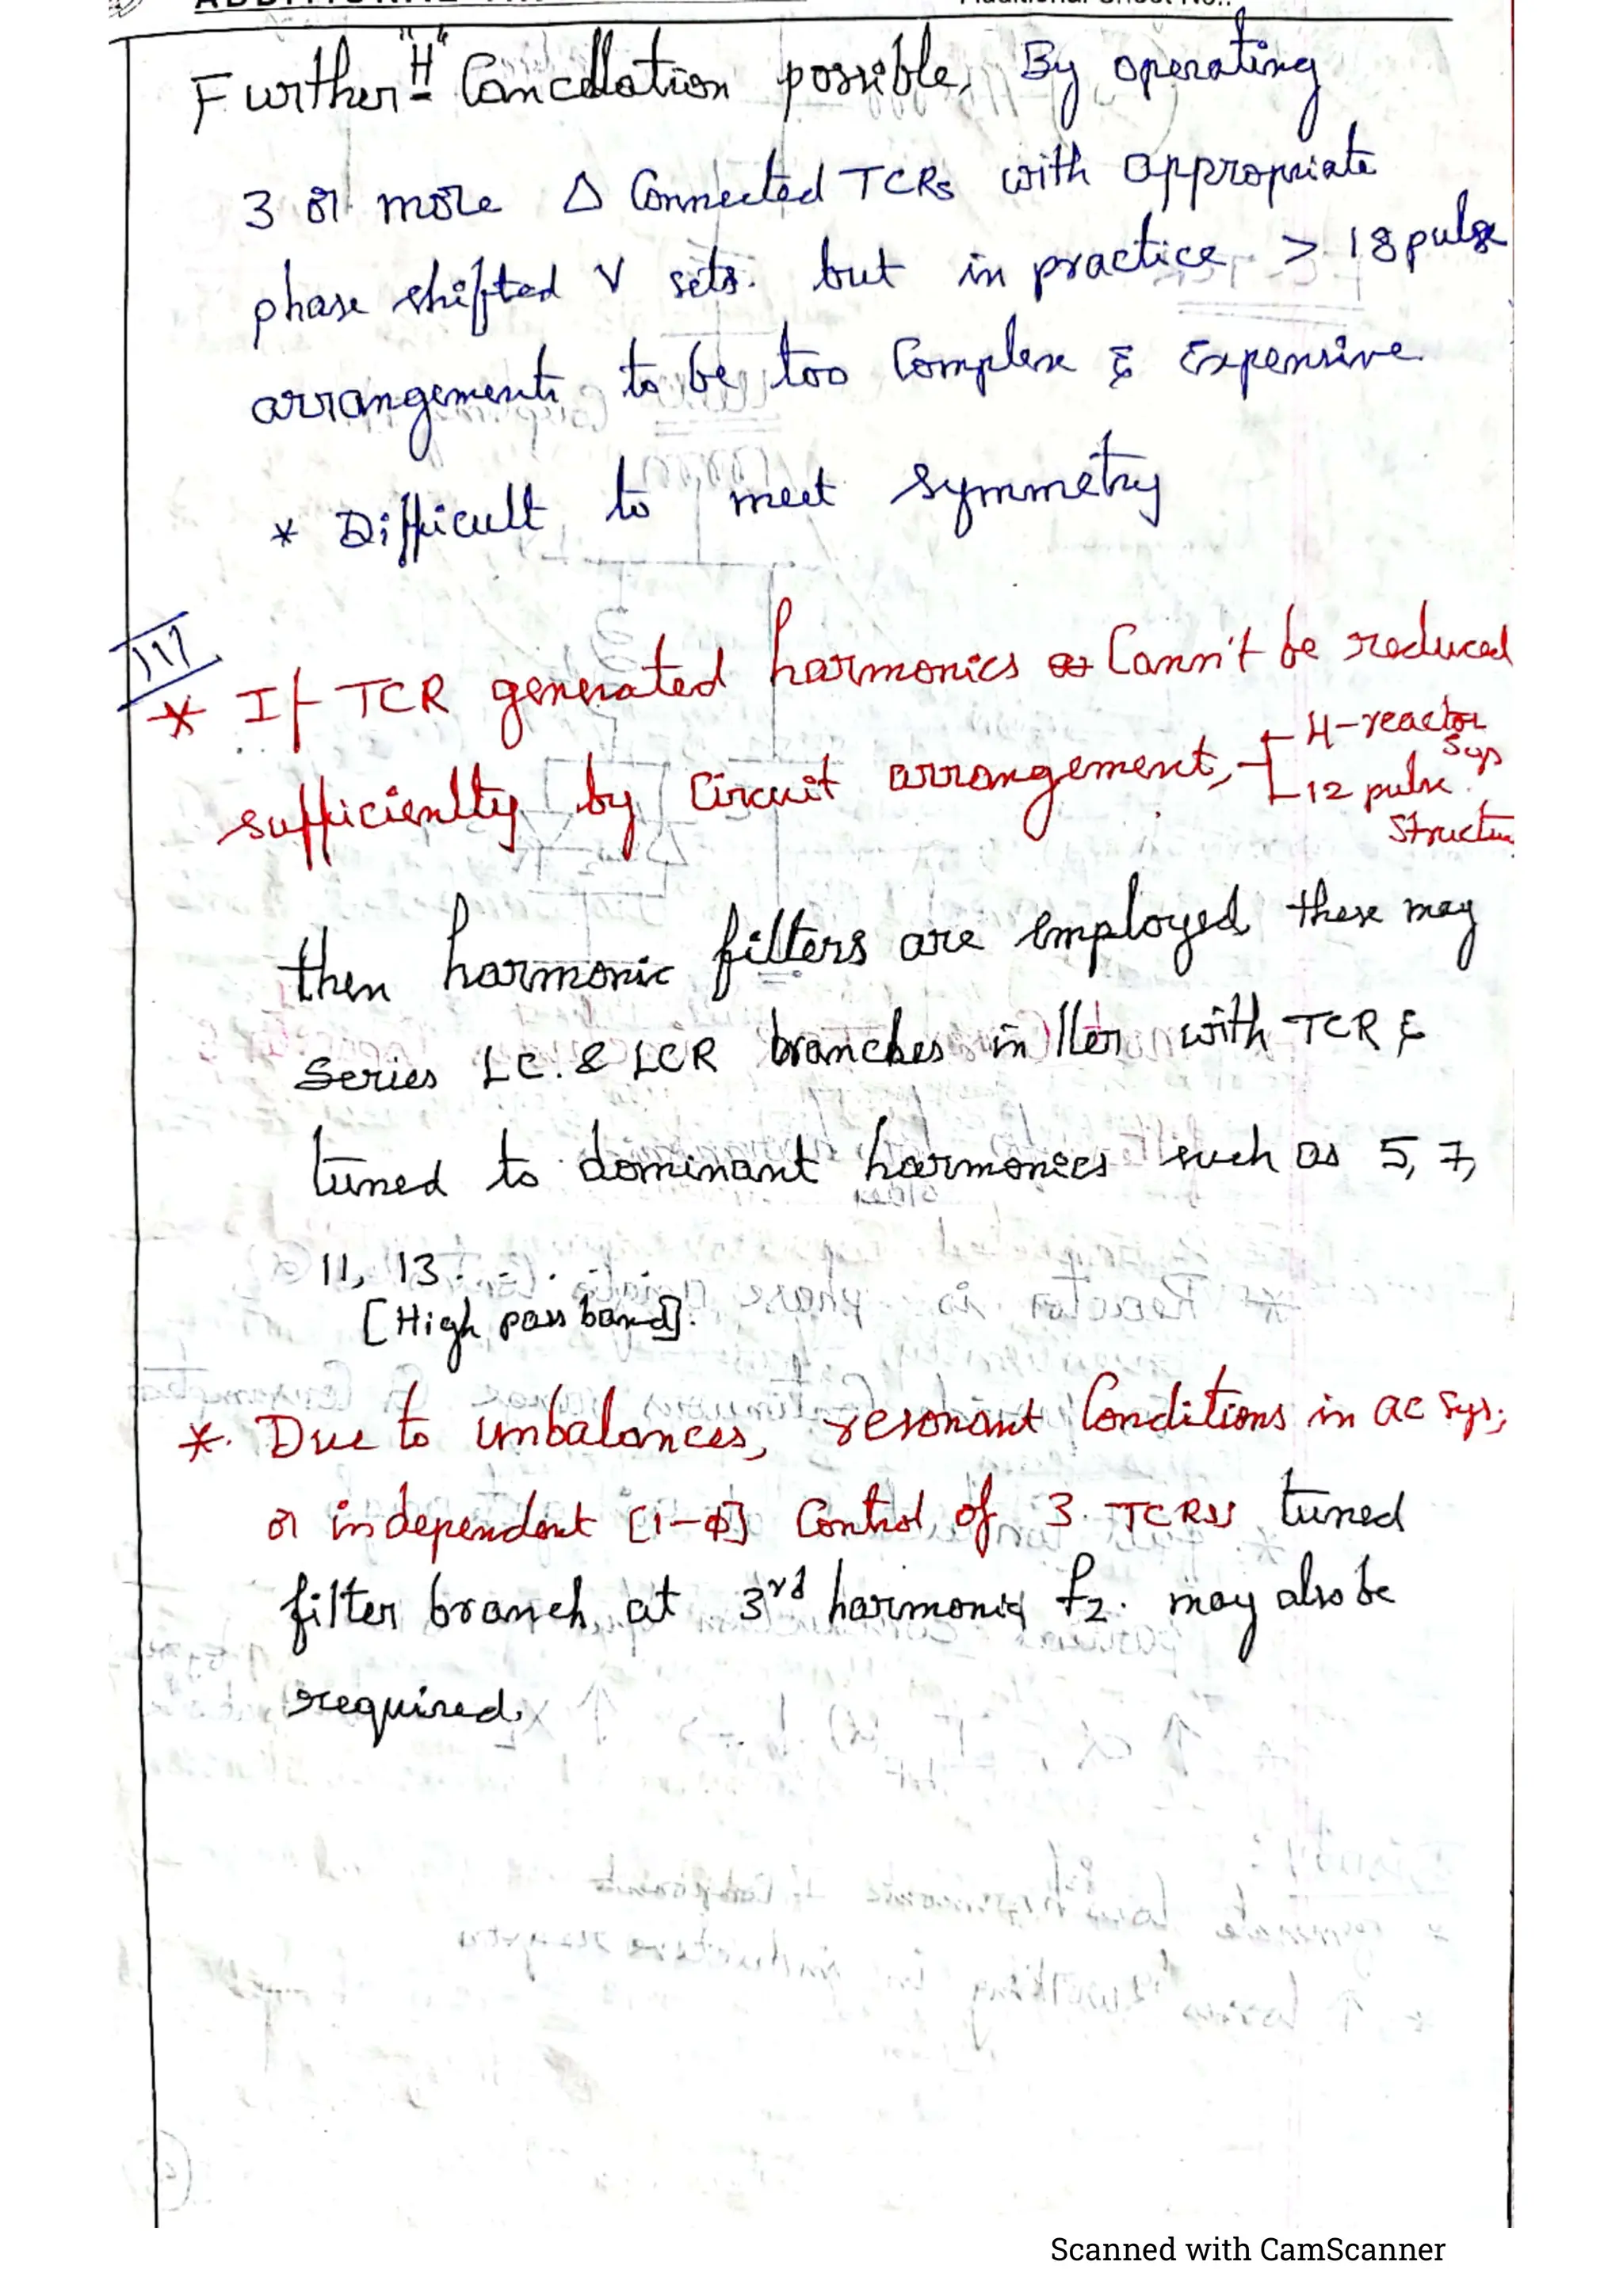 Further "H" Cancellation possible, By operating
3 or more Δ Connected TCRs with appropriate
phase shifted V sets. but in practice, > 18 pulse
arrangements to be too Complex & Expensive.
* Difficult to meet symmetry
* If TCR generated harmonics Cann't be reduced
sufficienlty by Circuit arrangement,
4-reactor
sys
12 pulse
Structu
then harmonic filters are employed, these may
Series LC. & LCR branches in ller with TCR &
tuned to dominant harmonics such as 5, 7,
11, 13. - . - .
[High pass band].
*. Due to unbalances, resonant Conditions in ac sys;
or independent [1-ϕ] Control of 3. TCRs, tuned
filter branch at 3rd harmonic fz. may also be
required.
Scanned with CamScanner